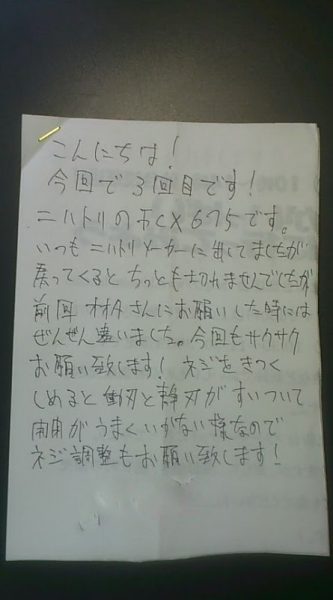 こんにちは!
今回で3回目です!
ニハトリの CX675です。
いつもニハトリメーカーに出してましたが
戻ってくるとちっとも切れませんでしたが
前回 オオタさんにお願いした時には
ぜんぜん違いました。今回もサクサク
お願い致します! ネジをきつく
しめると動刃と静刃がすいついて
開閉がうまくいかない様なので
ネジ調整もお願い致します!